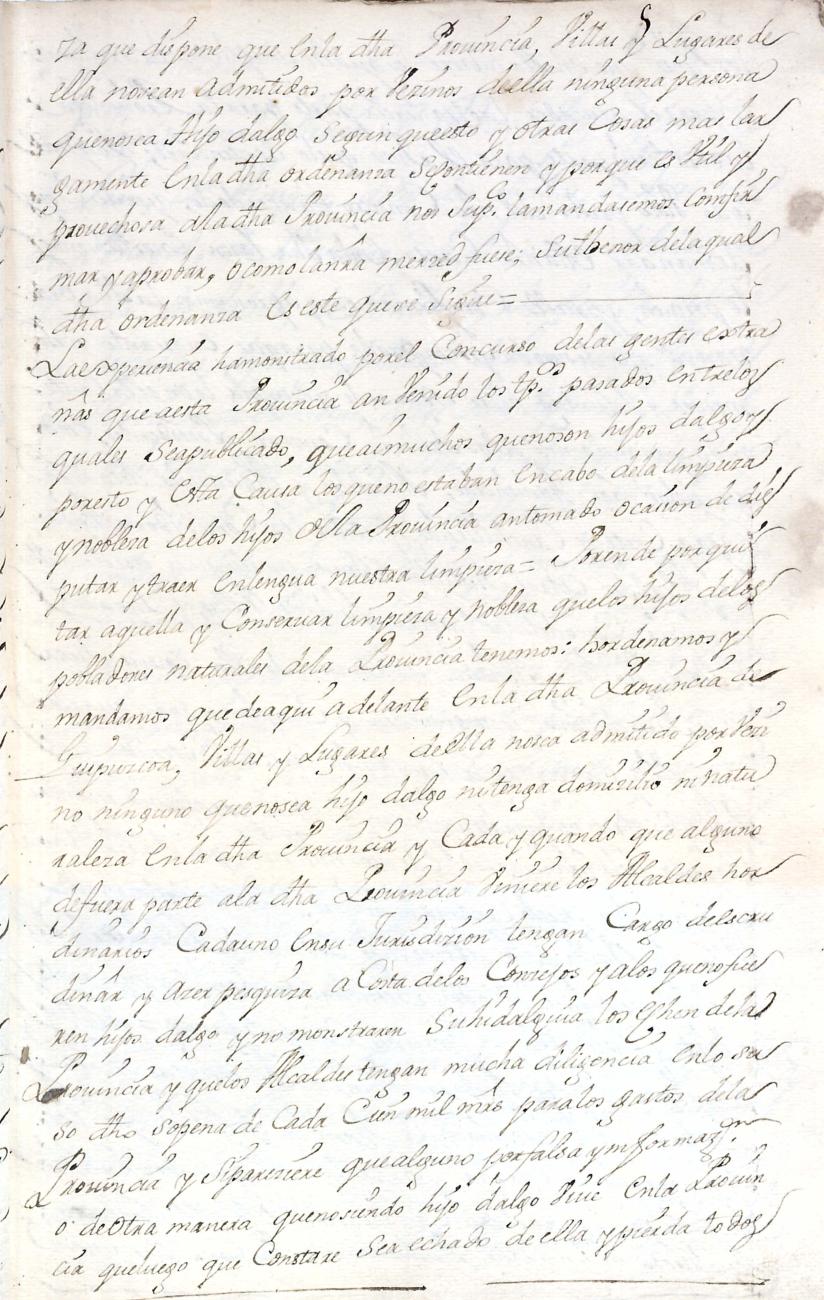 za que dispone que enla dha Prouincia, Villas y Lugares de
ella nosean admitidos por Vezinos deella ninguna persona
quenosea Hijo dalgo segun queesto y otras Cosas mas lar
gamente enla dha ordenanza secontienen y porque es Util y
prouechosa ala dha Prouincia nos Sup.co lamandasemos Confir
mar y aprobar, o como lanrã merzed fuese; Suthenor delaqual
dha ordenanza es este quese sigue=
Laexperiencia hamonstrado porel Concurso delas gentes extra
nãs que aesta Prouincia an Venido los tp.os pasados entrelos
quales seapublicado, queaimuchos quenoson hijos dalgo y
poresto y esta Causa losqueno estaban encabo dela limpieza
y nobleza delos hijos della Prouincia antomado ocasion de dis
putar y traer enlengua nuestra limpieza= Porende por qui
tar aquella y Conseruar limpieza y nobleza quelos hijos delos
pobladores naturales dela Prouincia tenemos: hordenamos y
mandamos quedeaqui adelante enla dha Prouincia de
Guipuzcoa, Villas y Lugares deella nosea admitido por Vezi
no ninguno quenosea hijo dalgo nitenga domizilio ninatu
raleza enla dha Prouincia y Cada y quando que alguno
defuera parte ala dha Prouincia Viniere los Alcaldes hor
dinarios Cadauno ensu Jurisdizion tengan Cargo delscru
diñar y azer pesquiza a Costa delos Conzejos y alos quenofue
ren hijos dalgo y no monstraren Suhidalguia los Echen dela
Prouincia y quelos Alcaldes tengan mucha diligencia enlo so
so dho sopena de Cada Cien mil mrs paralos gastos dela
Prouincia y Sipareziere quealguno porfalsa ynformaz.on
o deotra manera quenosiendo hijo dalgo Viue enla Prouin
cia queluego que Constare sea echado de ella y pierda todos